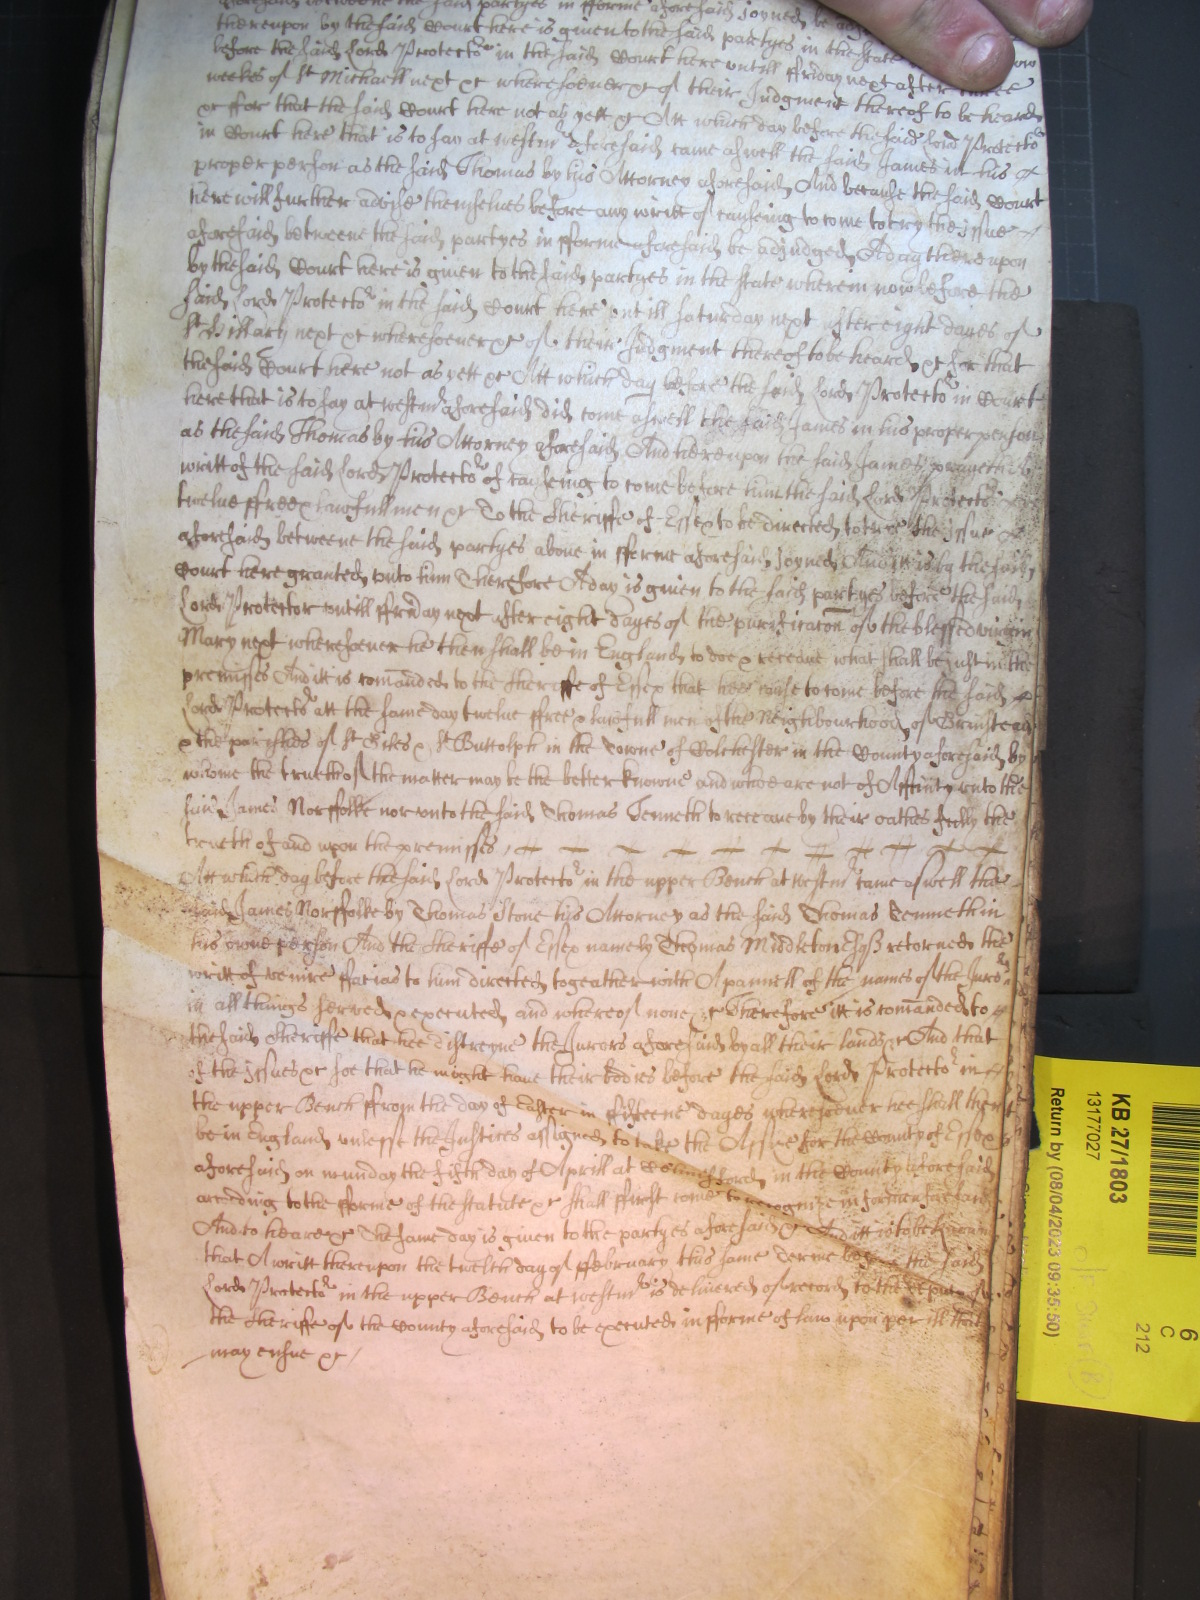 aforesaid betweene the said partyes in fforme aforesaid joyned be
thereupon by the said Court here is given to the said partyes in the state
before the said Lord Protector in the said Court here untill ffriday next after three
weekes of St Michaell next &c wheresoever &c of their Judgment thereof to be heard
&c ffor that the said Court here not as yett &c Att which day before the said Lord Protector
in Court here that is to say at Westmr aforesaid came aswell the said James in his &c
proper person as the said Thomas by his Attorney aforesaid And because the said Court
here will further advise themselves before any writt of causeing to come to try the issue
aforesaid betweene the said partyes in fforme aforesaid be adjudged A day thereupon
by the said Court here is given to the said partyes in the state wherein now before the
said Lord Protector in the said Court here untill Saturday next after eight dayes of
St Hillary next &c wheresoever &c of their Judgment thereof to be heard &c for that
the said Court here not as yett &c Att which day before the said Lord Protector in Court
here that is to say at Westmr aforesaid did come aswell the said James in his proper person
as the said Thomas by his Attorney aforesaid And hereupon the said James prayeth
writt of the said Lord Protector of causeing to come before him the said Lord Protector
twelve ffree & lawfull men &c To the Sheriffe of Essex to be directed to trye the issue
aforesaid betweene the said partyes above in fforme aforesaid joyned And itt is by the said
Court here granted unto him Therefore A day is given to the said partyes before the said
Lord Protector untill ffriday next after eight dayes of the purificacon of the blessed virgin
Mary next wheresoever he then shall be in England to doe & receave what shall be just in the
premisses And itt is comanded to the Sheriffe of Essex that hee cause to come before the said
Lord Protector att the same day twelve ffree & lawfull men of the Neighbourhood of Brinstead
& the parishes of St Giles & St Buttolph in the Towne of Colchester in the County aforesaid by
whome the trueth of the matter may be the better knowne and whoe are not of Affinity unto the
said James Norffolke nor unto the said Thomas Tenneth to receave by their oathes fully the
trueth of and upon the premisses
Att which day before the said Lord Protector in the upper Bench at Westmr came aswell the
said James Norffolke by Thomas Stone his Attorney as the said Thomas Tenneth in
his owne person And the Sheriffe of Essex namely Thomas Middleton Esqr retorned the
writt of venire ffacias to him directed togeather with A pannell of the names of the Jurors
in all things served & executed and whereof none &c Therefore itt is comanded to
the said Sheriffe that hee distreyne the Jurors aforesaid by all their lands &c And that
of the issues &c soe that he might have their bodies before the said Lord Protector in
the upper Bench ffrom the day of Easter in fifteene dayes wheresoever hee shall then
be in England unlesse the Justices assigned to take the Assizes for the County of Essex
aforesaid on munday the fifth day of Aprill at Chelmesford in the County aforesaid
according to the fforme of the statute &c shall ffirst come
And to heare &c The same day is given to the partyes aforesaid &c And itt is to be knowne
that A writt thereupon the twelth day of ffebruary this same Terme before the said
Lord Protector in the upper Bench at Westmr is delivered of record to the deputy of
the Sheriffe of the County aforesaid to be executed in fforme of law upon perill that
may ensue &c
KB 27/1803
13177027
Return by (08/04/2023 09:35:50)
6
C
212